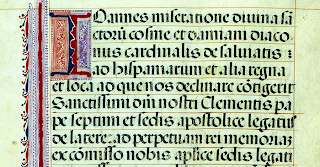 Ioannes miseratione diuina sā
ctorū cosme et damiani diaco
nus cardinalis de saluiatis :
ad hispaniarum et alia regna
et loca ad que nos declinare cōtigerit
Sanctissimi dm̄ nostri Clementis pa
pe septimi et sedis apostolice legatus
de latere: ad perpetuam rei memoriā
ex cōmisso nobis aplice sedis legati